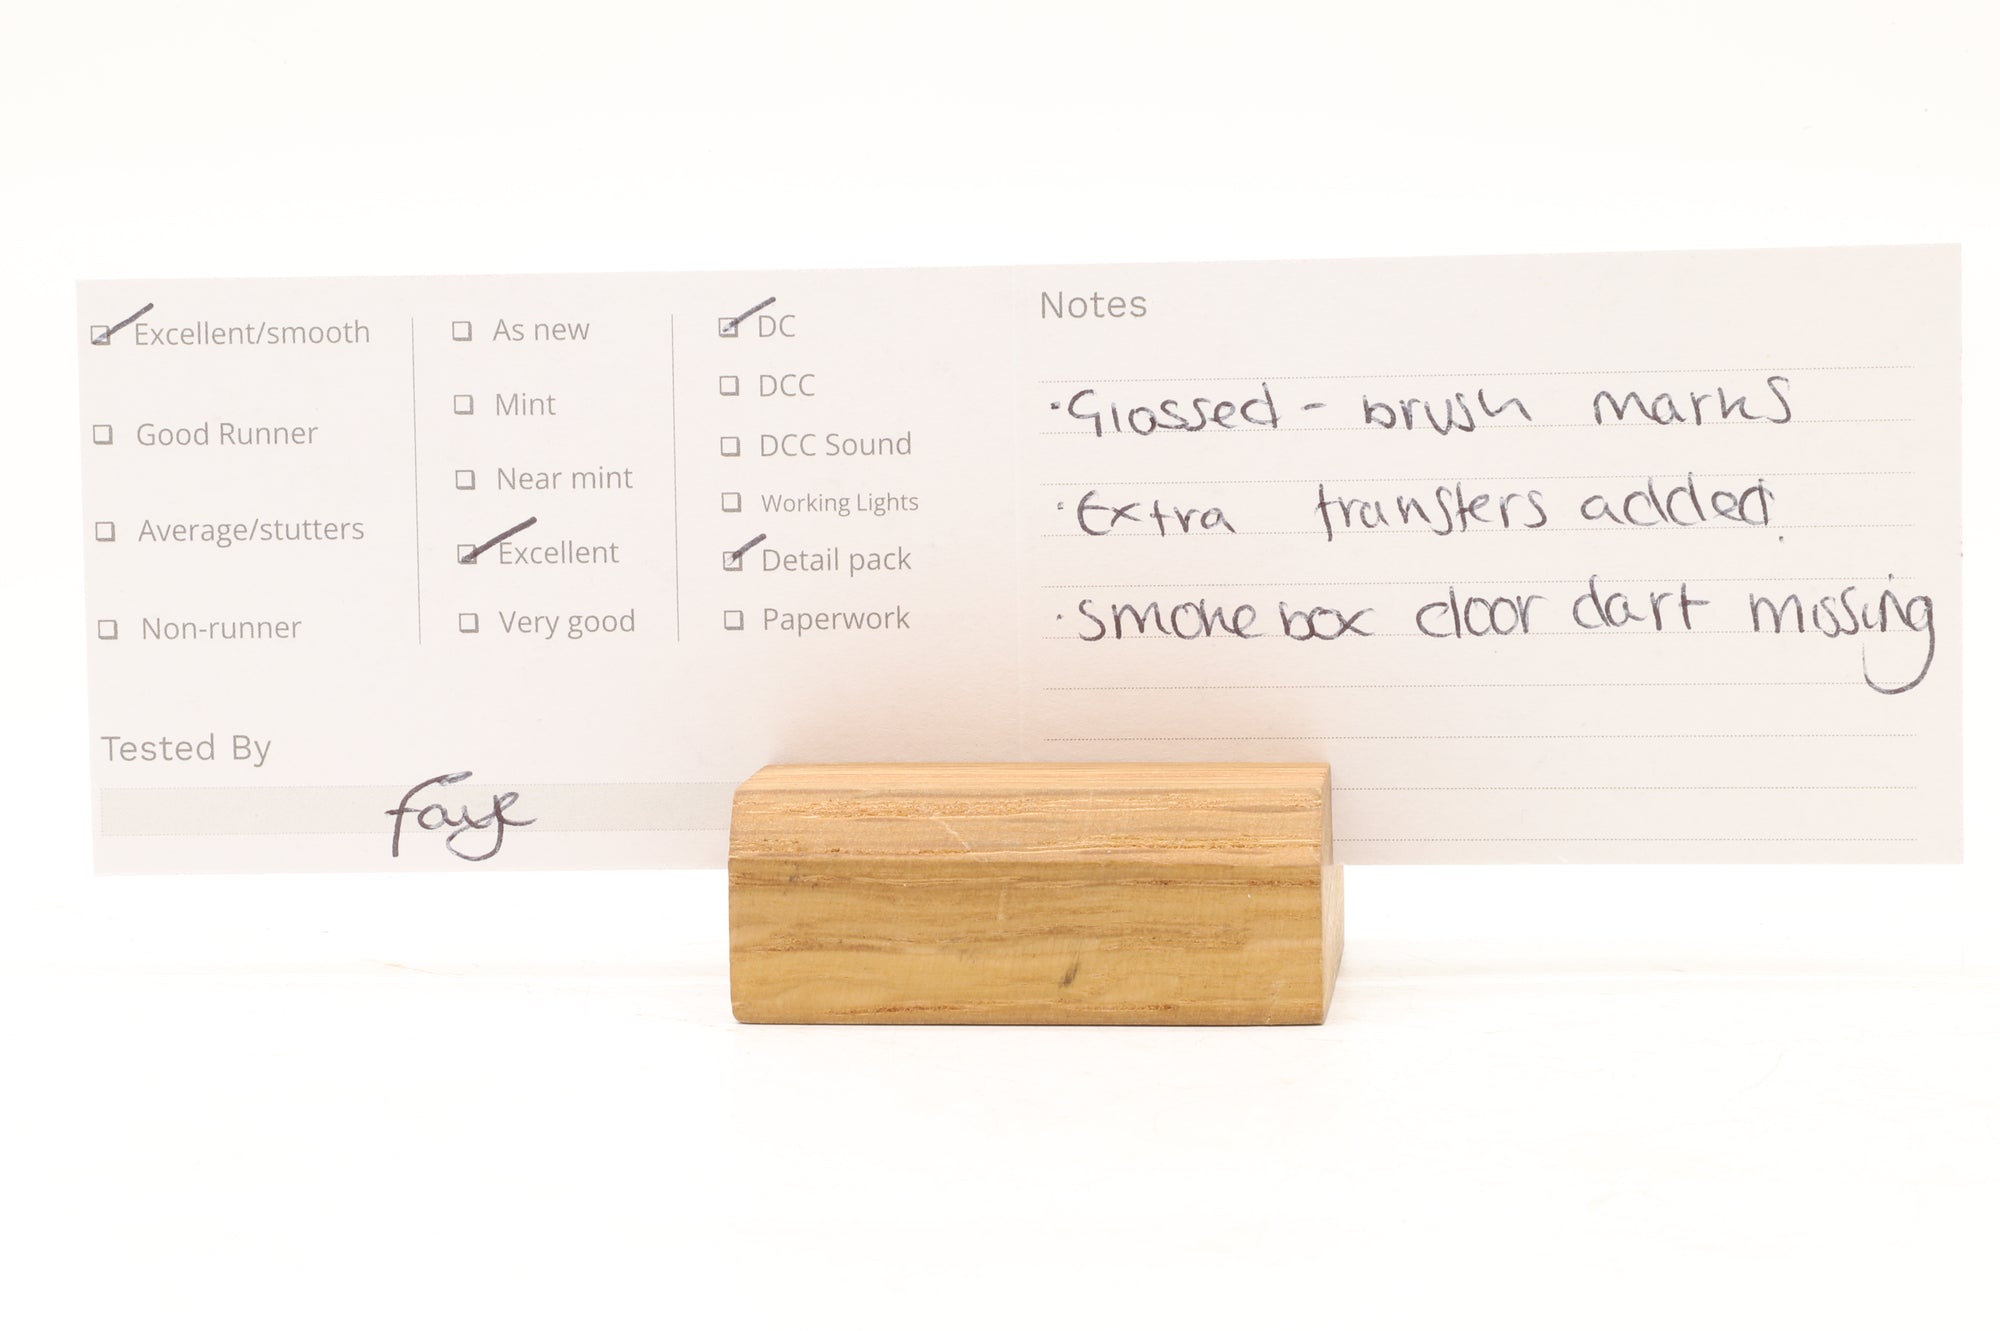 Excellent/smooth
Good Runner
Average/stutters
Non-runner
As new
Mint
Near mint
Excellent
Very good
DC
DCC
DCC Sound
Working Lights
Detail pack
Paperwork
Tested By
faye
Notes
·Glossed - brush marks
·Extra transfers added.
·smoke box door dart missing